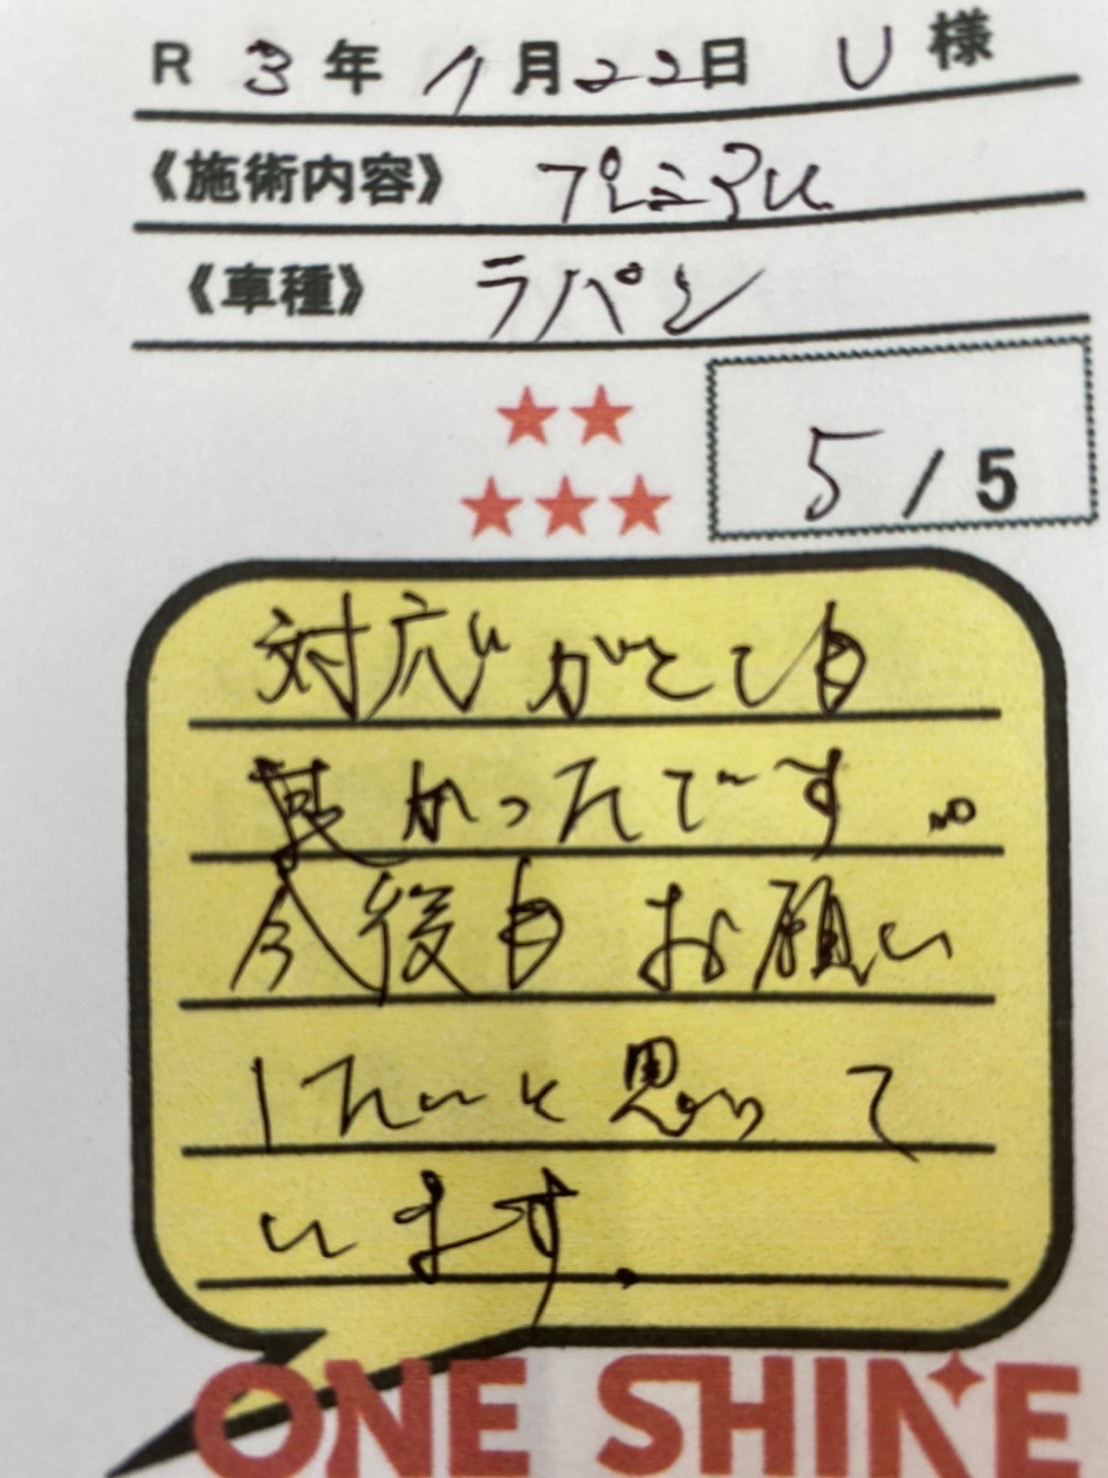 R 3年 11月22日 U 様
《施術内容》 プレミアム
《車種》 ラパン
★★
★★★
5/5
対応がとても
良かったです。
今後もお願い
したいと思って
います.
ONE SHINE